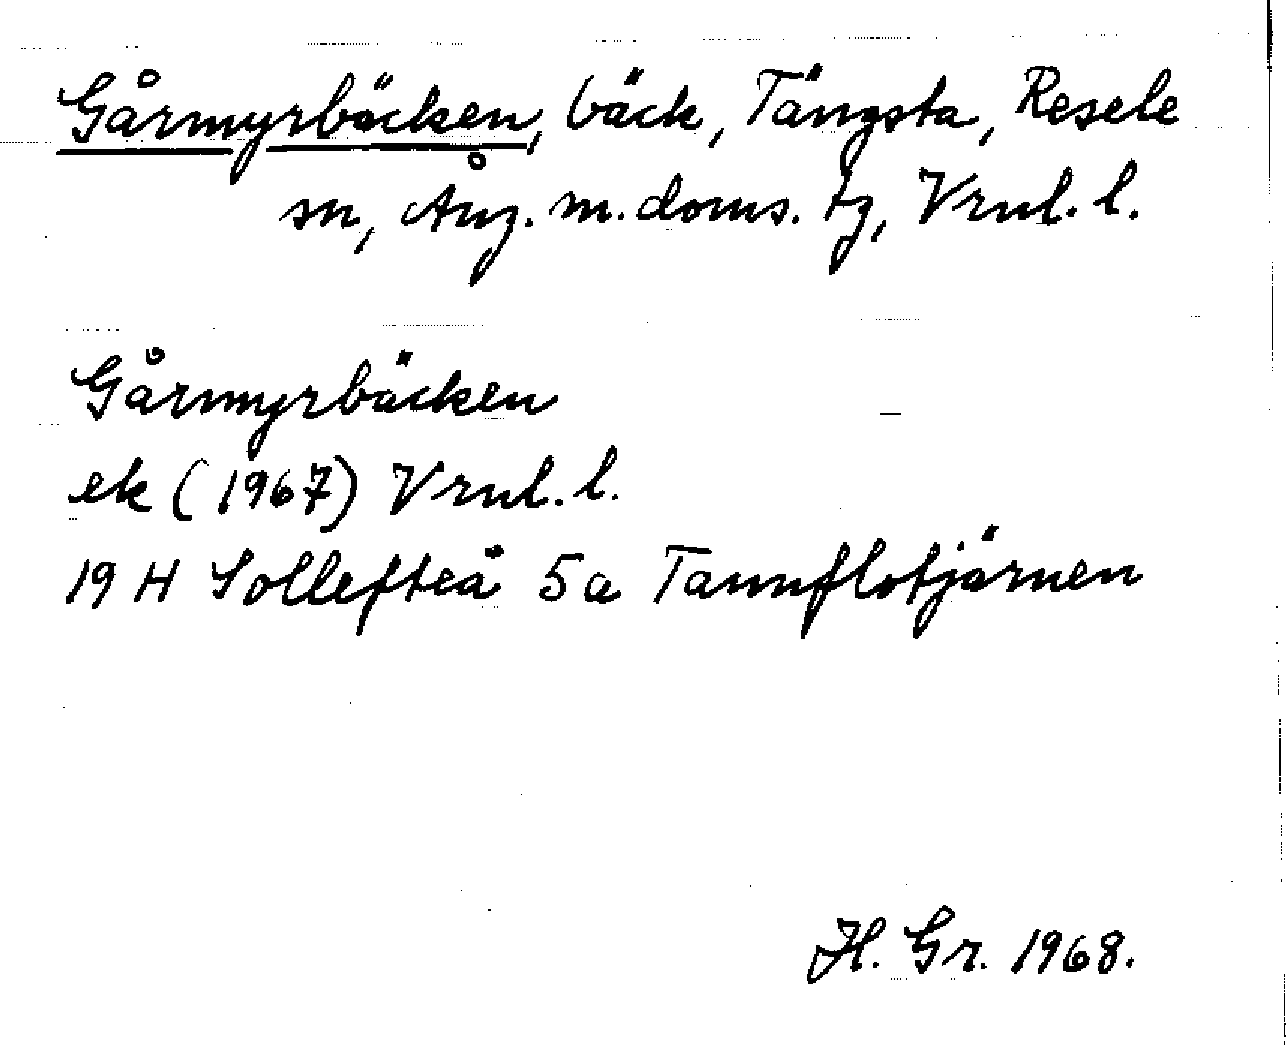 Gårmyrbäcken, bäck, Tängsta, Resele
sn, Ång. m. doms. tg, Vrnl. l.
Gårmyrbäcken
ek (1967) Vrnl. l.
19 H Sollefteå 5a Tannflotjärnen
H. Gr. 1968.